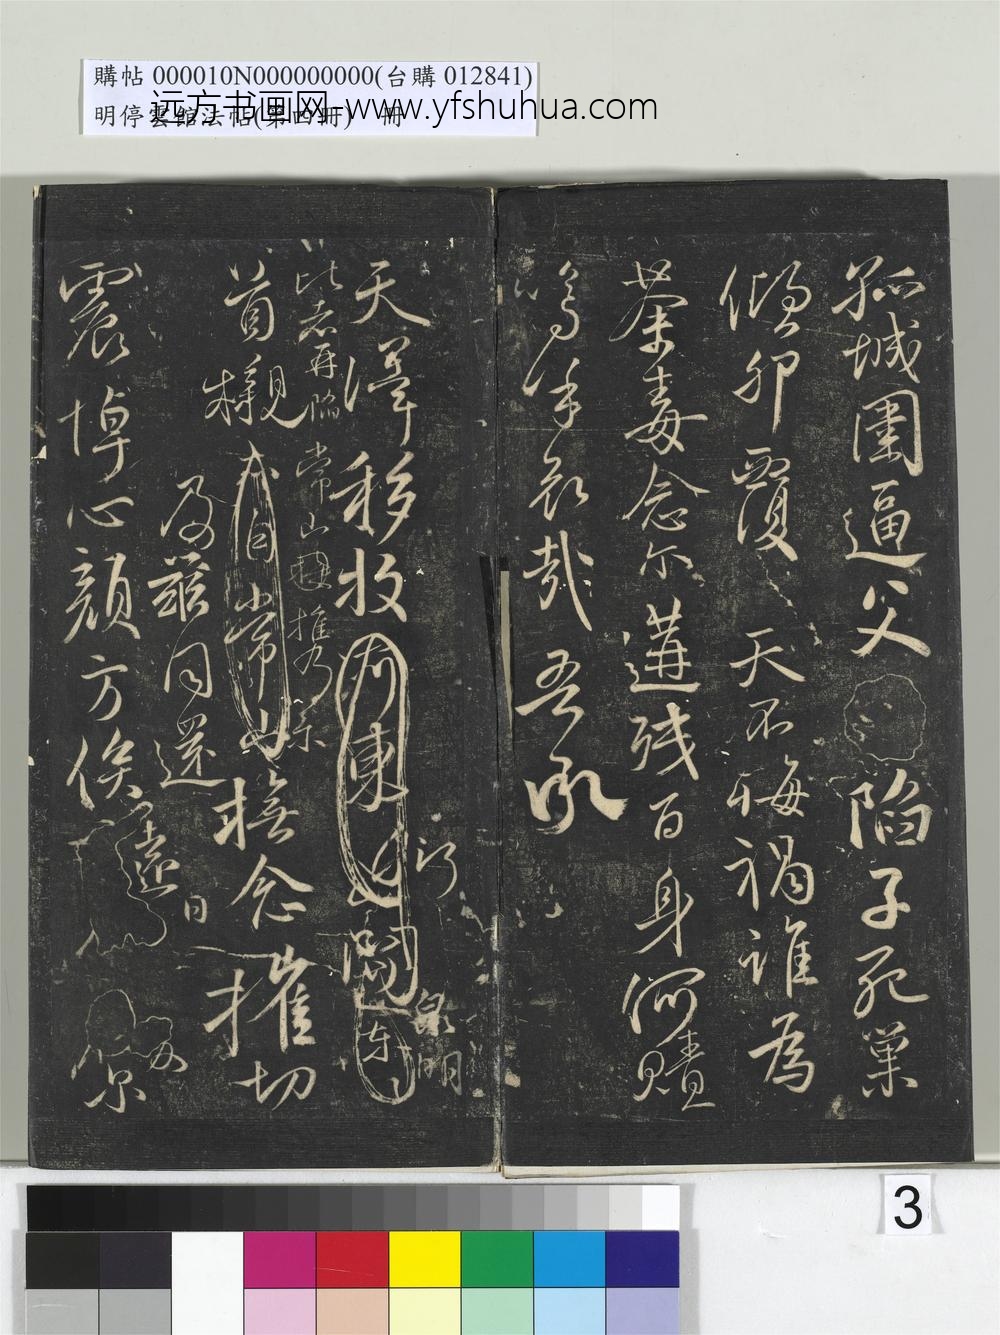 購帖 000010N000000000(台購 012841)
明停雲館法帖(第四冊) 冊
远方书画网-www.yfshuhua.com
孤城圍逼父陷子死巢
傾卵覆 天不悔禍誰為
荼毒念爾遘殘百身何贖
嗚乎哀哉吾承
天澤移牧河東 河
泉明
比者再陷常山
首櫬
及茲同還
撫念摧切
震悼心顏方俟遠日
3